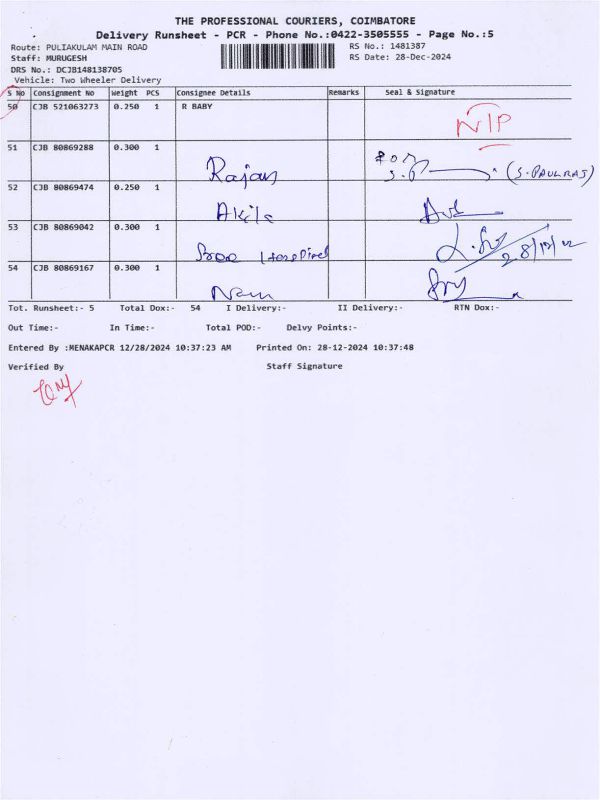 THE PROFESSIONAL COURIERS, COIMBATORE
Delivery Runsheet - PCR - Phone No.:0422-3505555 - Page No.:5
Route: PULIAKULAM MAIN ROAD
RS No.: 1481387
Staff: MURUGESH
RS Date: 28-Dec-2024
DRS No.: DCJB148138705
Vehicle: Two Wheeler Delivery
S No Consignment No Weight PCS Consignee Details Remarks Seal & Signature
50 CJB 521063273 0.250 1 R BABY
N/P
51 CJB 80869288 0.300 1
Rajan (S. PAULRAJ)
52 CJB 80869474 0.250 1
Akila
53 CJB 80869042 0.300 1
54 CJB 80869167 0.300 1
Tot. Runsheet:- 5 Total Dox:- 54 I Delivery:- II Delivery:- RTN Dox:-
Out Time:- In Time:- Total POD:- Delvy Points:-
Entered By :MENAKAPCR 12/28/2024 10:37:23 AM Printed On: 28-12-2024 10:37:48
Verified By Staff Signature